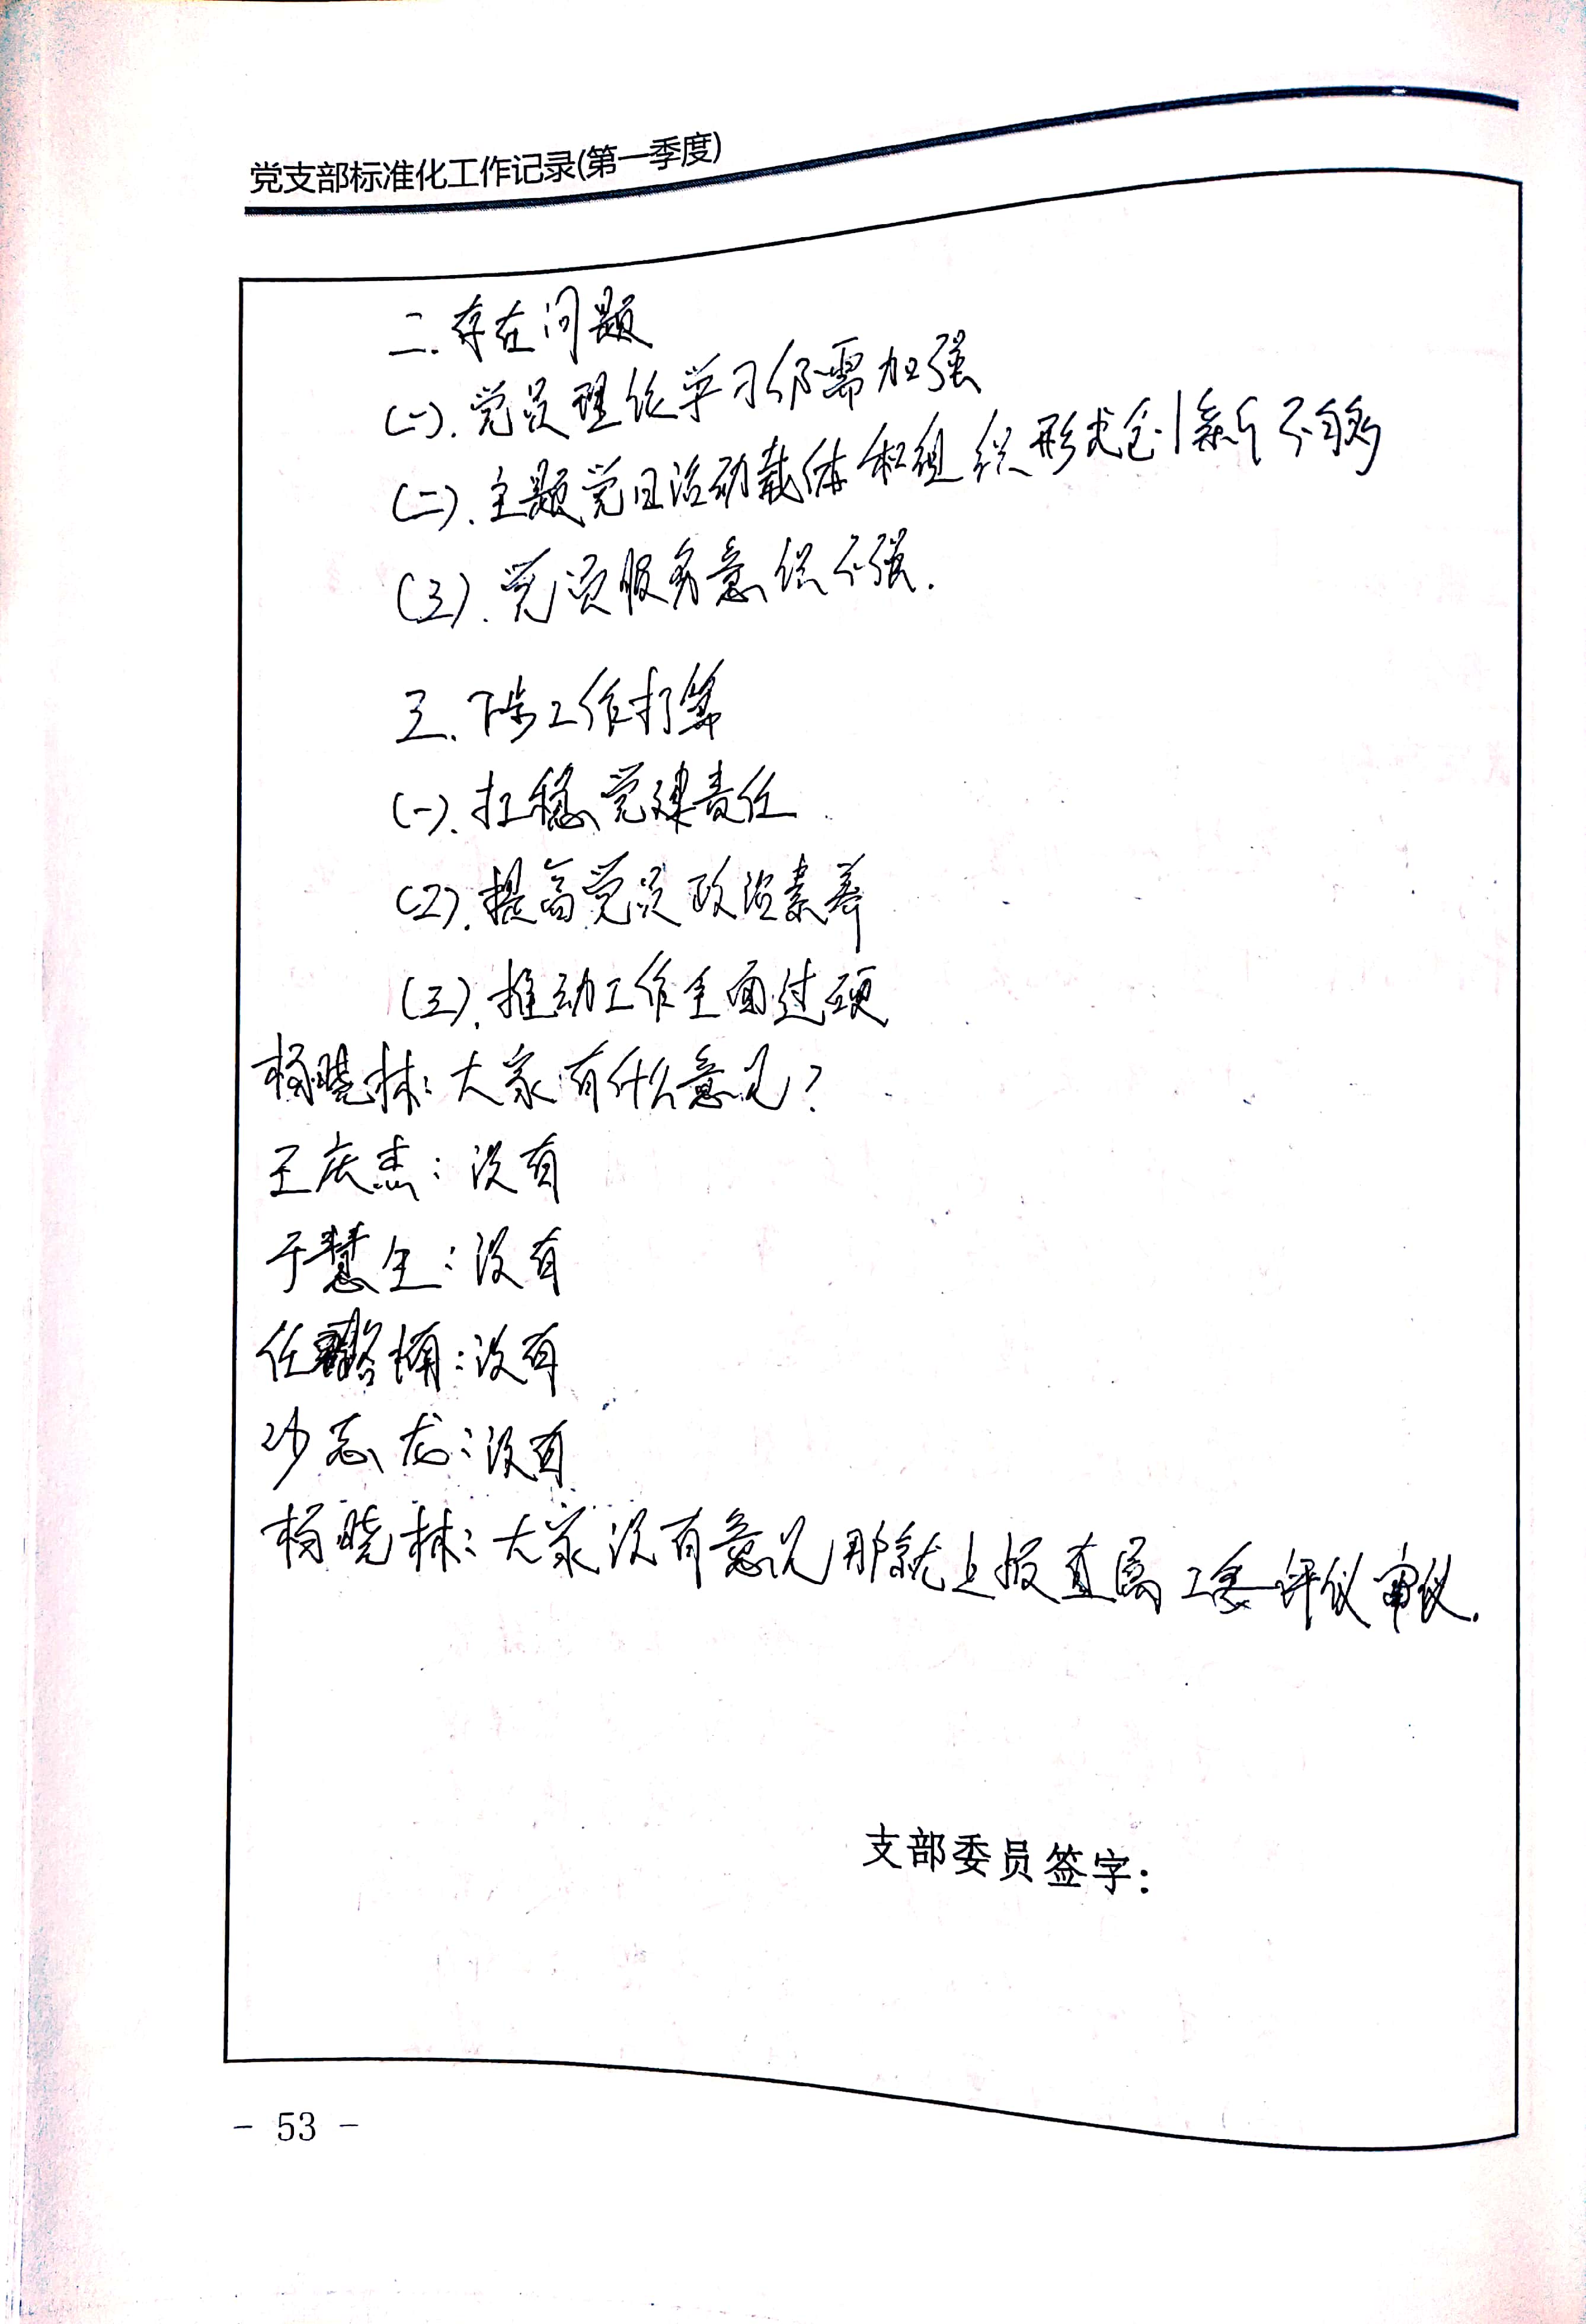 党支部标准化工作记录(第一季度)
二.存在问题
(一).党员理论学习仍需加强
(二).主题党日活动载体和组织形式创新不够
(三).党员服务意识不强.
三.下步工作打算
(一).扛稳党建责任
(二).提高党员政治素养
(三).推动工作全面过硬
杨晓林:大家有什么意见?
王庆杰:没有
于慧生:没有
任楠:没有
沙志龙:没有
杨晓林:大家没有意见那就上报直属工委评议审议.
支部委员签字:
- 53 -